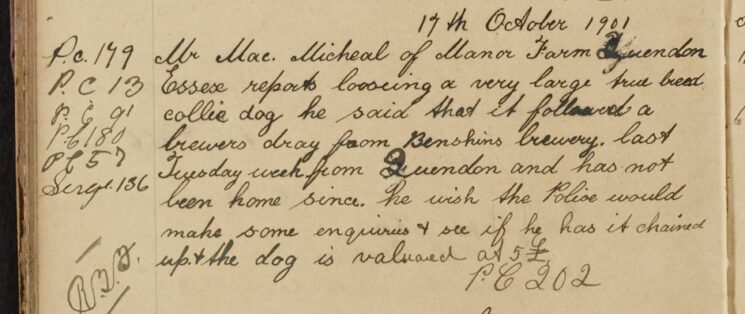 17th October 1901
P.c. 179 Mr Mac. Micheal of Manor Farm Quendon
P.C 13 Essex reports looseing a very large true breed
P.C 91 collie dog he said that it followed a
P.C 180 brewers dray from Benskins brewery. last
P.C 57 Tuesday week from Quendon and has not
Sergt. 136 been home since. he wish the Police would
make some enquiries & see if he has it chained
up. & the dog is valuaed at 5£
P.C 202